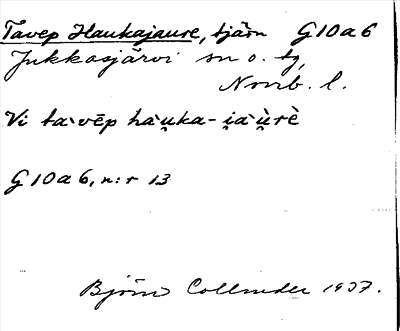 Tavep Haukajaure, tjärn G10a6
Jukkasjärvi sn o. tg,
Norrb. l.
Vi ta`vēp hà u̯ka- i̯a`ù̯rè
G10a6, n:r 13
Björn Collinder 1937.